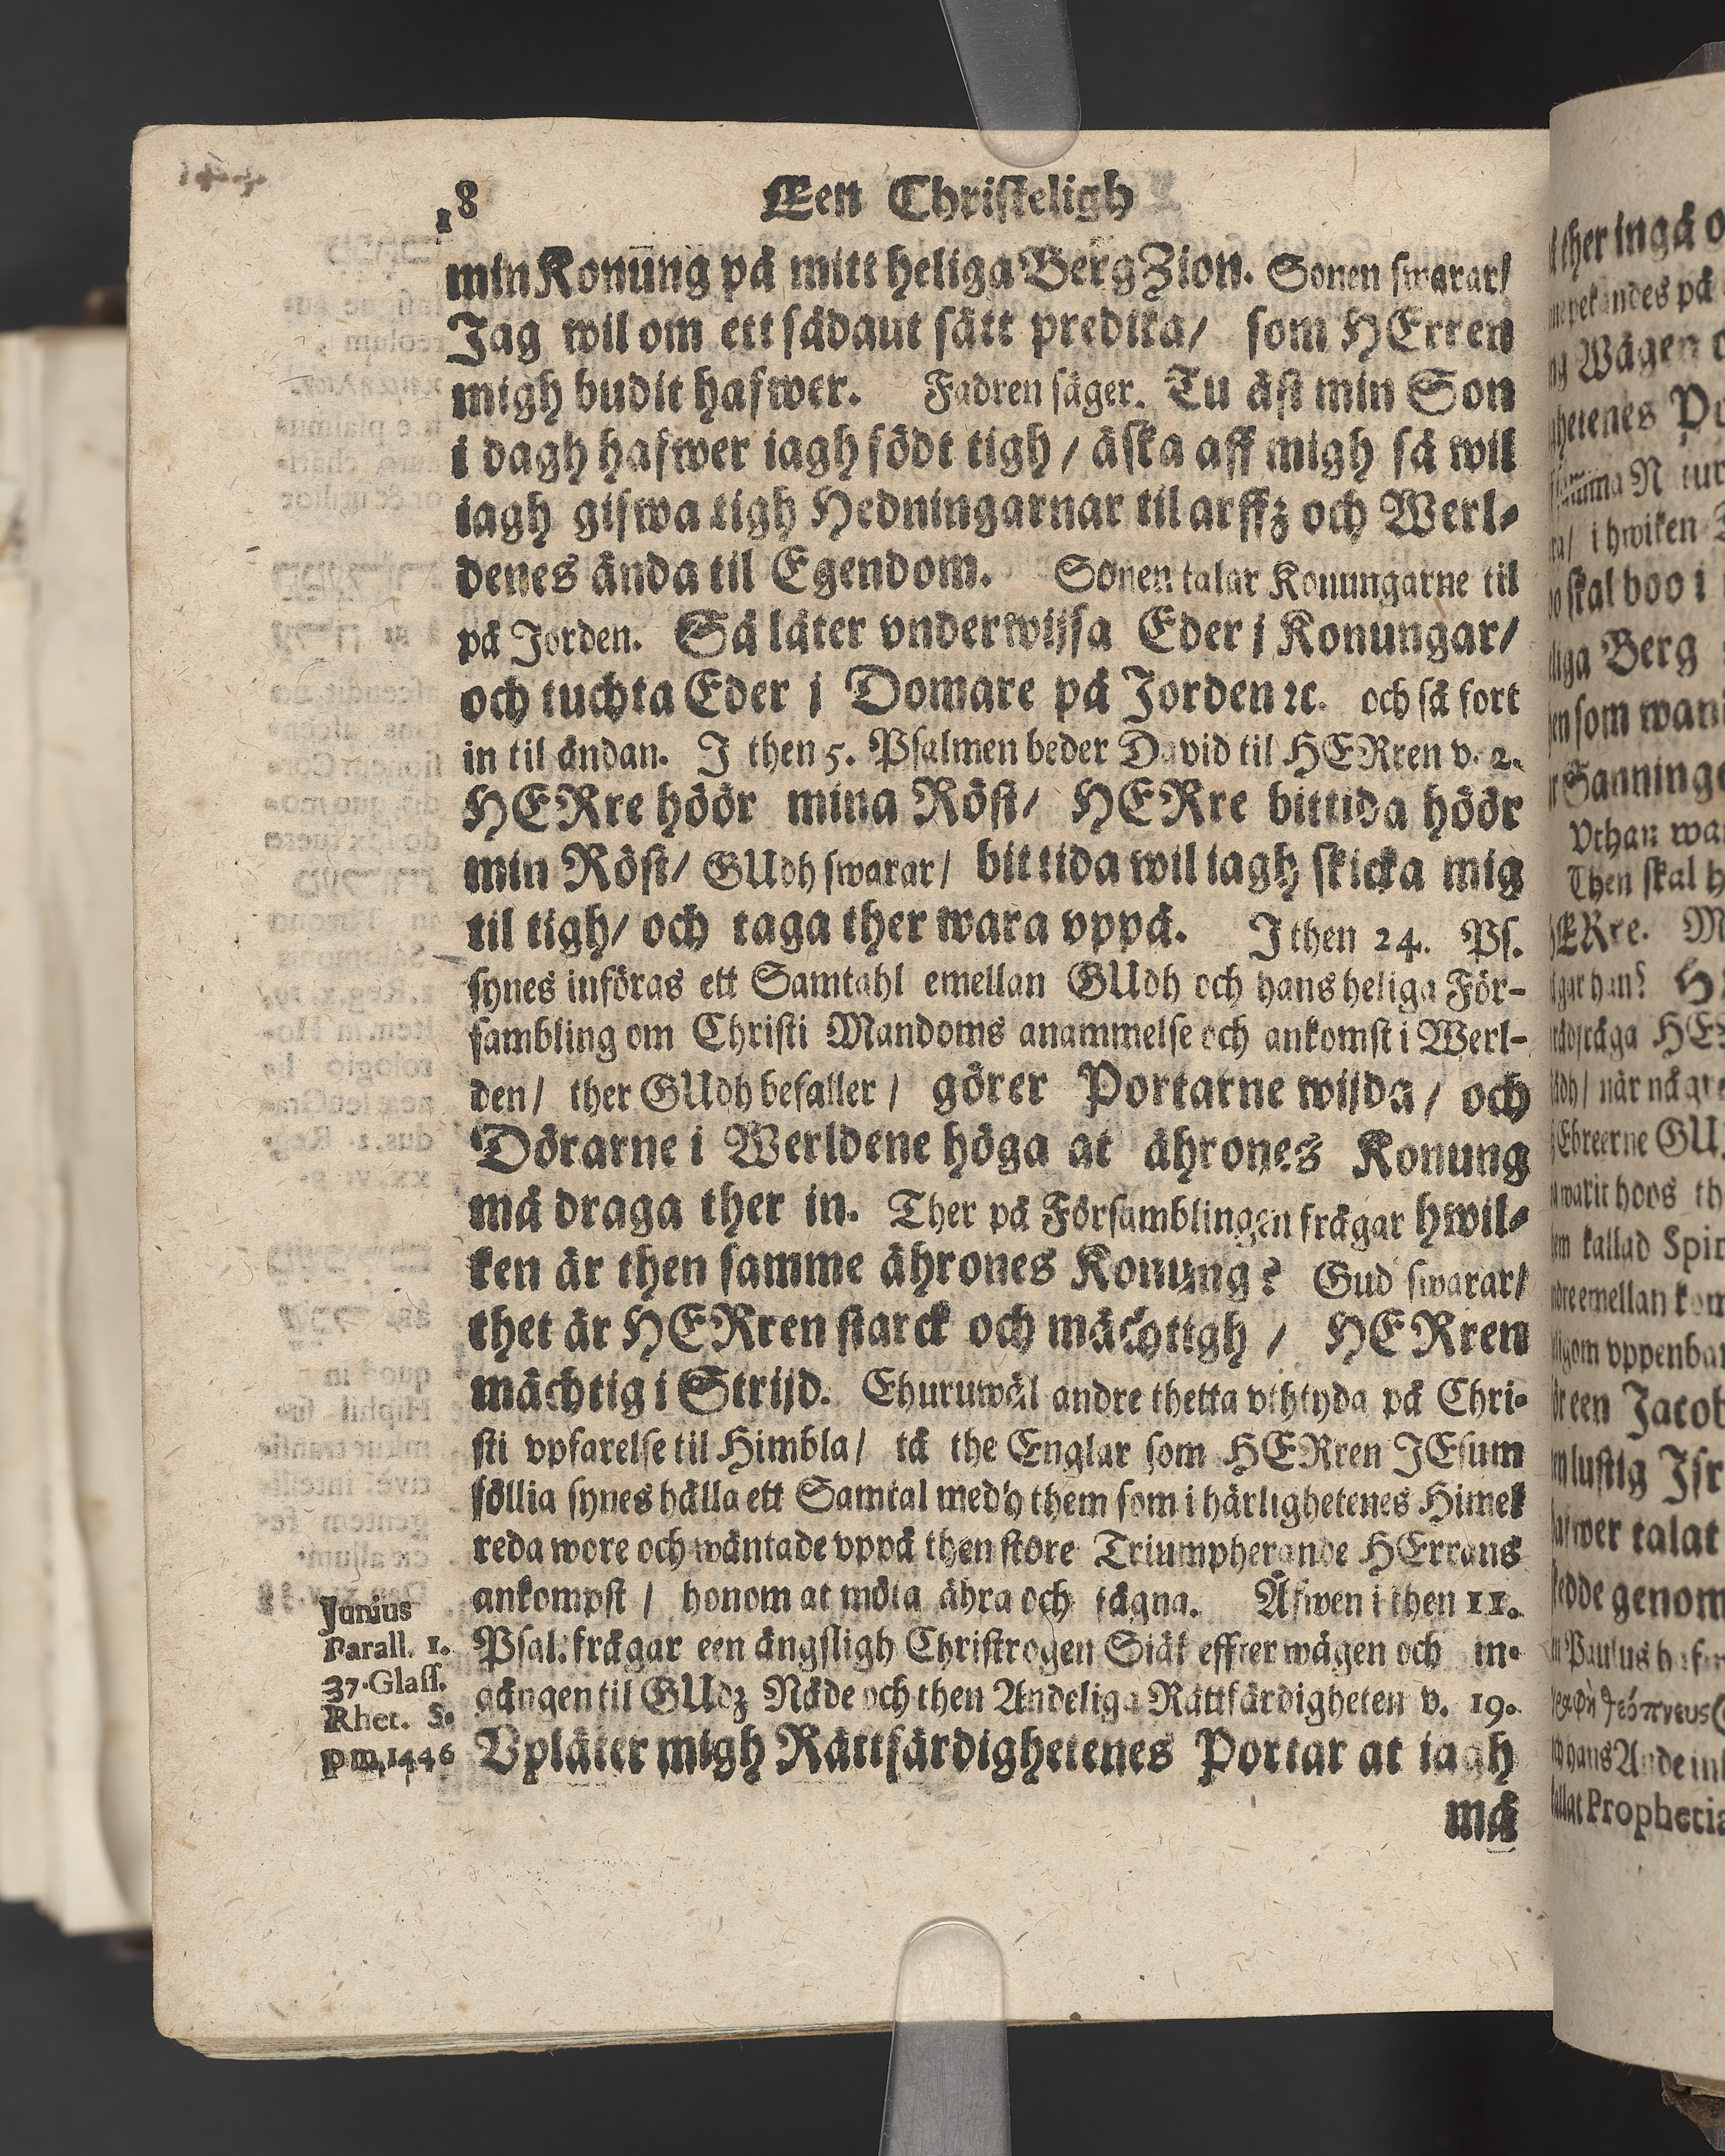 18 Een Christeligh
min Konung på mitt heliga Berg Zion. Sonen swarar/
Jag wil om ett sådaut sätt predika/ som HErren
migh budit hafwer. Fadren säger. Tu äst min Son
i dagh hafwer iagh födt tigh/ äska aff migh så wil
iagh gifwa tigh Hedningarnar til arffz och Werl-
denes ända til Egendom. Sonen talar Konungarne til
på Jorden. Så låter vnderwijsa Eder j Konungar/
och tuchta Eder j Domare på Jorden ꝛc. och så fort
in til ändan. J then 5. Psalmen beder David til HERren v. 2.
HERre höör mina Röst/ HERre bittida höör
min Röst/ GUdh swarar/ bittida wil iagh skicka mig
til tigh/ och taga ther wara vppå. J then 24. Ps.
synes införas ett Samtahl emellan GUdh och hans heliga För-
sambling om Christi Mandoms anammelse och ankomst i Werl-
den/ ther GUdh befaller/ görer Portarne wijda/ och
Dörarne i Werldene höga at ährones Konung
må draga ther in. Ther på Församblingen frågar hwil-
ken är then samme ährones Konung? Gud swarar/
thet är HERren starck och mächtigh/ HERren
mächtig i Strijd. Ehuruwäl andre thetta vthtyda på Chri-
sti vpfarelse til Himbla/ tå the Englar som HERren JEsum
föllia synes hålla ett Samtal medh them som i härlighetenes Himel
reda wore och wäntade vppå then störe Triumpherande HErrans
ankompst/ honom at möta ähra och fägna. Äfwen i then 11.
Psal. frågar een ängsligh Christrogen Siäl effter wägen och in-
gången til GUdz Nåde och then Andeliga Rättfärdigheten v. 19.
Vplåter migh Rättfärdighetenes Portar at iagh
må
Junius
Parall. 1.
37. Glass.
Rhet. S.
p m. 1446